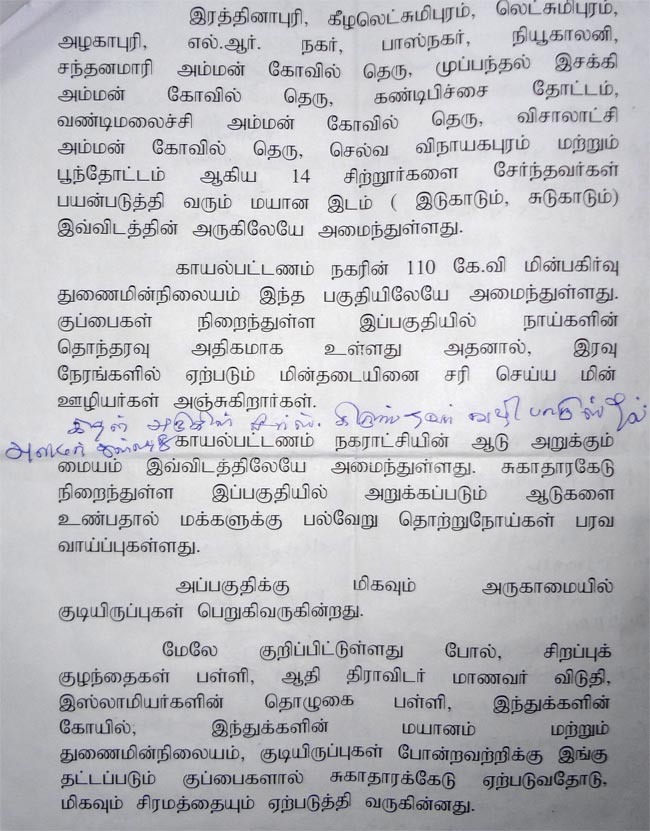 இரத்தினாபுரி, கீழலெட்சுமிபுரம், லெட்சுமிபுரம்,
அழகாபுரி, எல்.ஆர். நகர், பாஸ்நகர், நியூகாலனி,
சந்தனமாரி அம்மன் கோவில் தெரு, முப்பந்தல் இசக்கி
அம்மன் கோவில் தெரு, கண்டிபிச்சை தோட்டம்,
வண்டிமலைச்சி அம்மன் கோவில் தெரு, விசாலாட்சி
அம்மன் கோவில் தெரு, செல்வ விநாயகபுரம் மற்றும்
பூந்தோட்டம் ஆகிய 14 சிற்றூர்களை சேர்ந்தவர்கள்
பயன்படுத்தி வரும் மயான இடம் ( இடுகாடும், சுடுகாடும்)
இவ்விடத்தின் அருகிலேயே அமைந்துள்ளது.
காயல்பட்டணம் நகரின் 110 கே.வி மின்பகிர்வு
துணைமின்நிலையம் இந்த பகுதியிலேயே அமைந்துள்ளது.
குப்பைகள் நிறைந்துள்ள இப்பகுதியில் நாய்களின்
தொந்தரவு அதிகமாக உள்ளது அதனால், இரவு
நேரங்களில் ஏற்படும் மின்தடையினை சரி செய்ய மின்
ஊழியர்கள் அஞ்சுகிறார்கள்.
இதன் அருகில்
காயல்பட்டணம் நகராட்சியின் ஆடு அறுக்கும்
மையம் இவ்விடத்திலேயே அமைந்துள்ளது. சுகாதாரகேடு
நிறைந்துள்ள இப்பகுதியில் அறுக்கப்படும் ஆடுகளை
உண்பதால் மக்களுக்கு பல்வேறு தொற்றுநோய்கள் பரவ
வாய்ப்புகள்ளது.
அப்பகுதிக்கு மிகவும் அருகாமையில்
குடியிருப்புகள் பெறுகிவருகின்றது.
மேலே குறிப்பிட்டுள்ளது போல், சிறப்புக்
குழந்தைகள் பள்ளி, ஆதி திராவிடர் மாணவர் விடுதி,
இஸ்லாமியர்களின் தொழுகை பள்ளி, இந்துக்களின்
கோயில், இந்துக்களின் மயானம் மற்றும்
துணைமின்நிலையம், குடியிருப்புகள் போன்றவற்றிக்கு இங்கு
தட்டப்படும் குப்பைகளால் சுகாதாரக்கேடு ஏற்படுவதோடு,
மிகவும் சிரமத்தையும் ஏற்படுத்தி வருகின்னது.